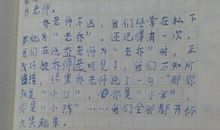 乔老师。
乔老师不凶，我们经常在私下
她为"老乔"。还记得有一次，
们在说乔老师为"老乔"时，正
巧被乔师听见了，我们不知所
措，结果乔老师说了一句："那你
就是"小丁"，你是"小
你是"小陈"……我们全部都开怀
大笑起来。